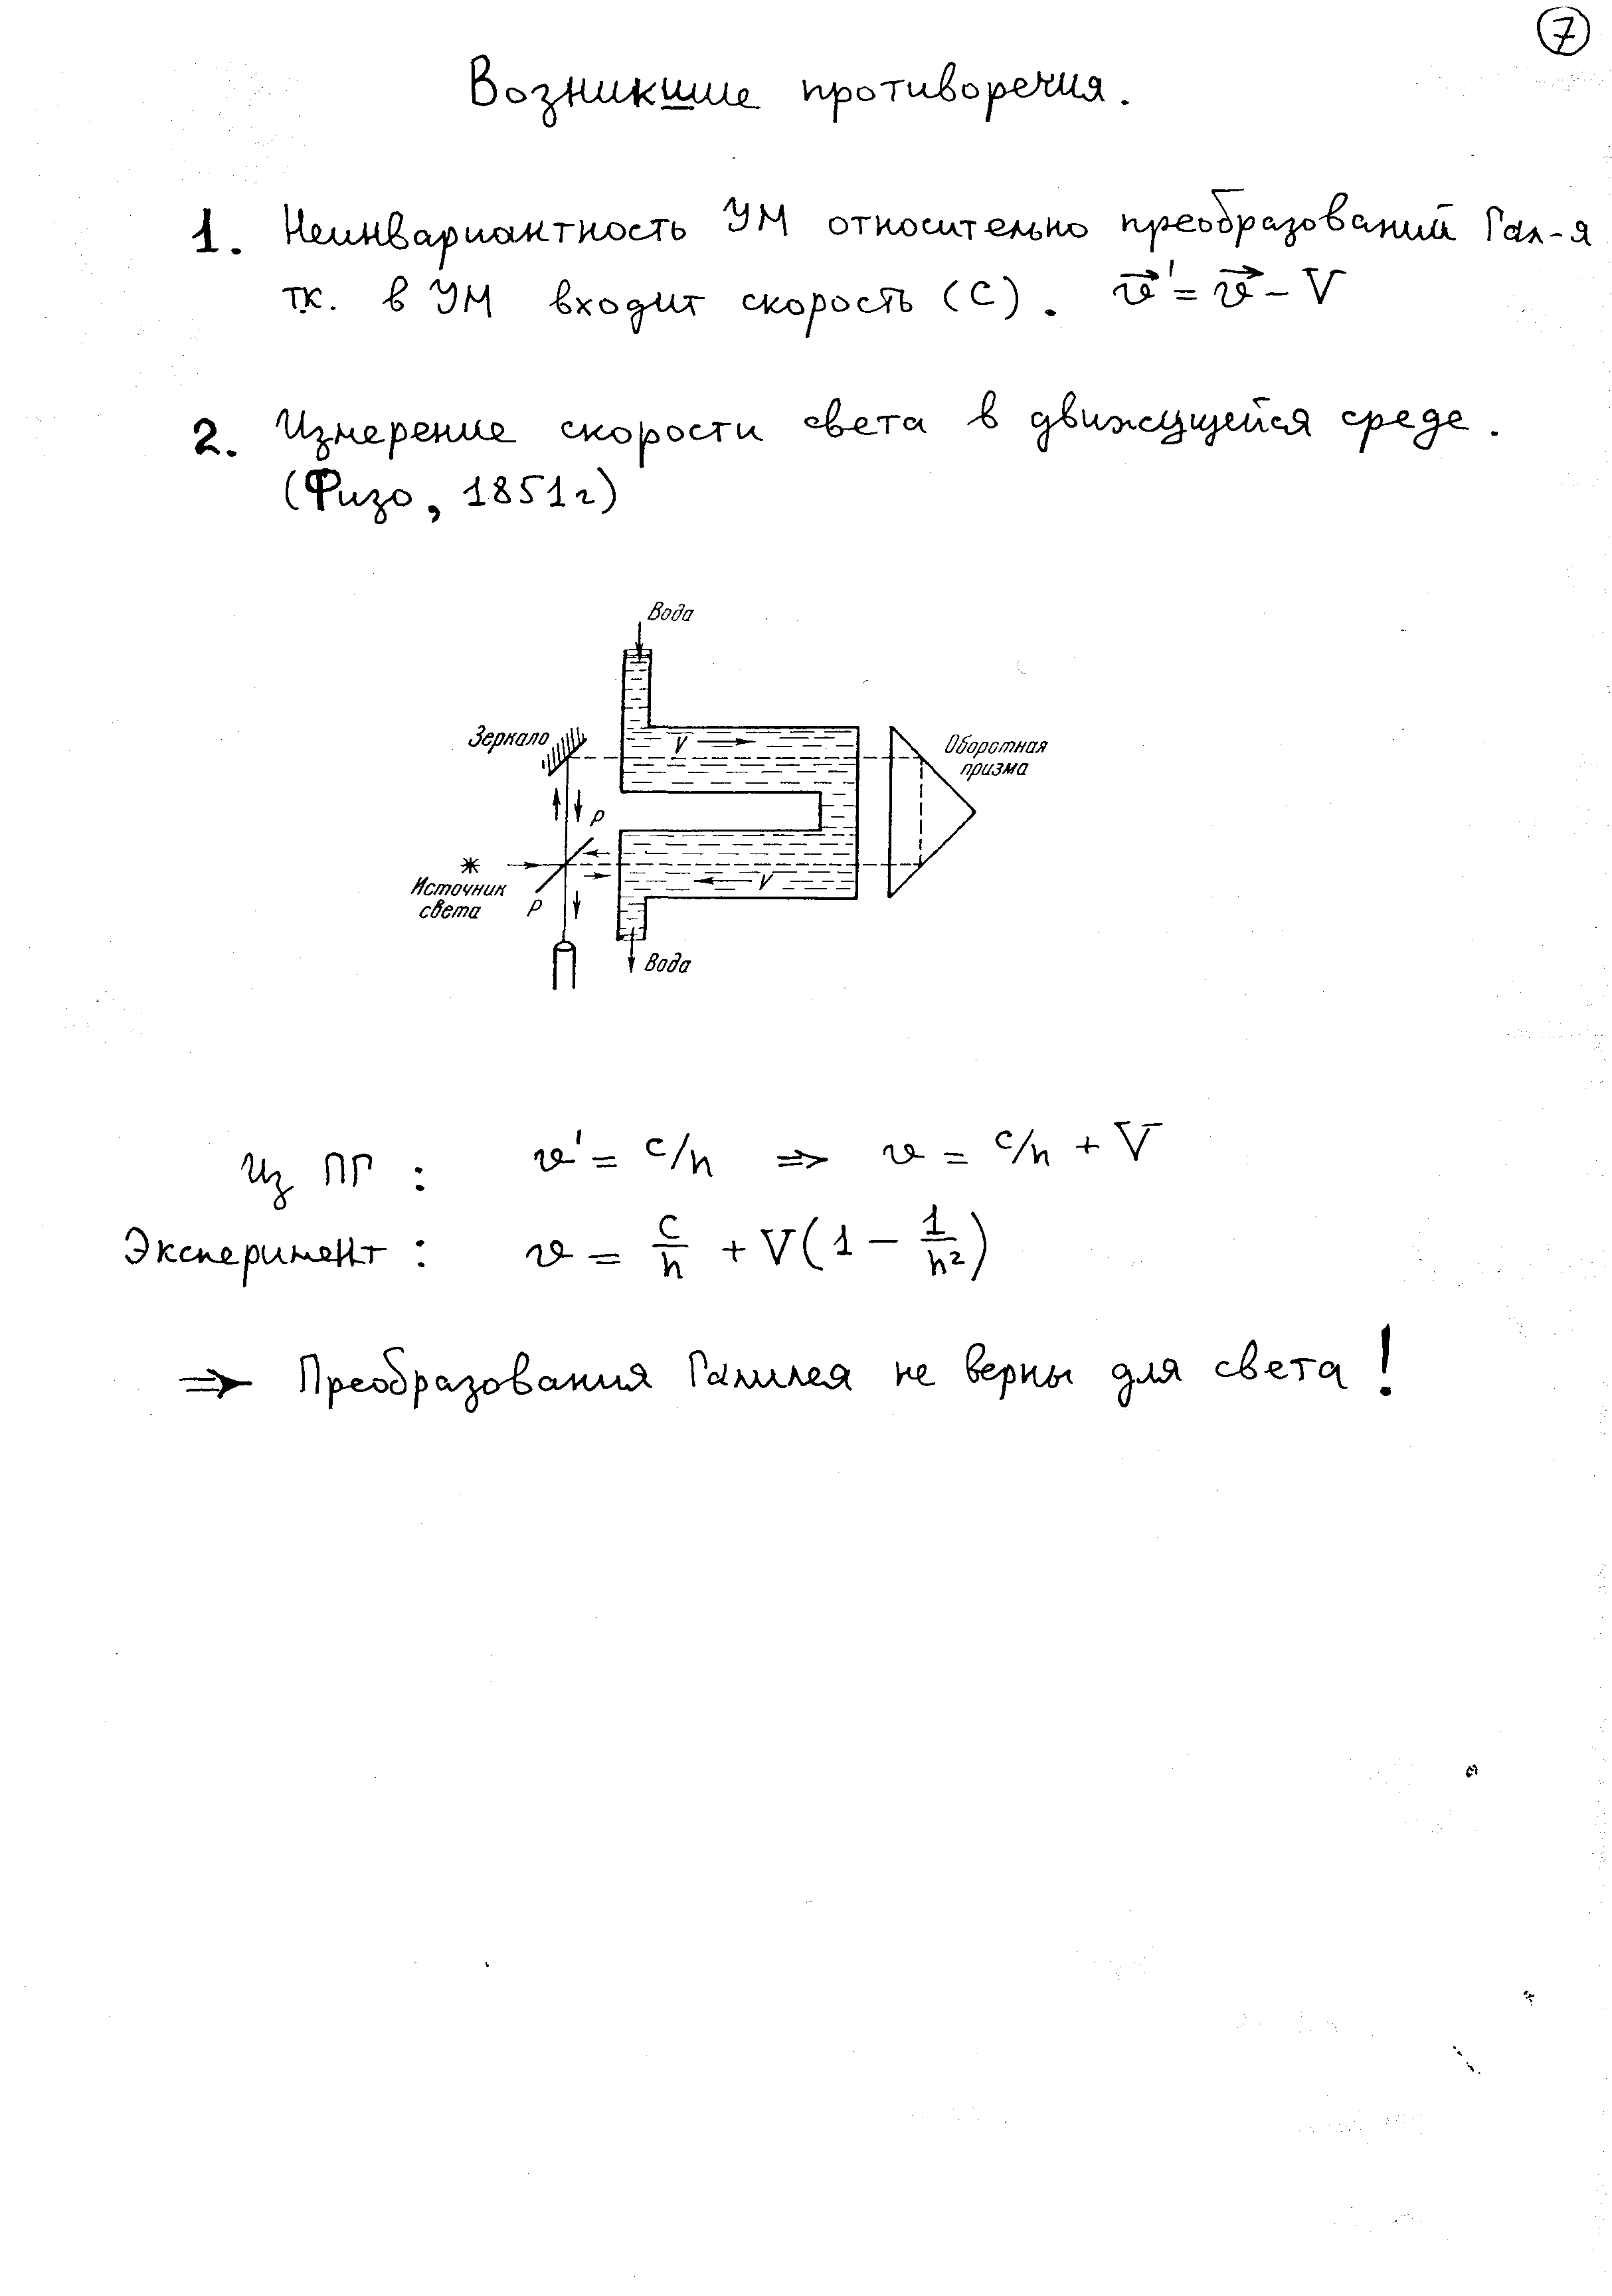 7
Возникшие противоречия.
1. Неинвариантность УМ относительно преобразований Гал-я
тк. в УМ входит скорость (с). v⃗' = v⃗ – V
2. Измерение скорости света в движущейся среде.
(Физо, 1851г)
Вода
Зеркало
V
Оборотная
призма
P
Источник
света
P
V
Вода
Из ПГ: v' = c/n ⇒ v = c/n + V
Эксперимент: v = c/n + V(1 – 1/n²)
⇒ Преобразования Галилея не верны для света!